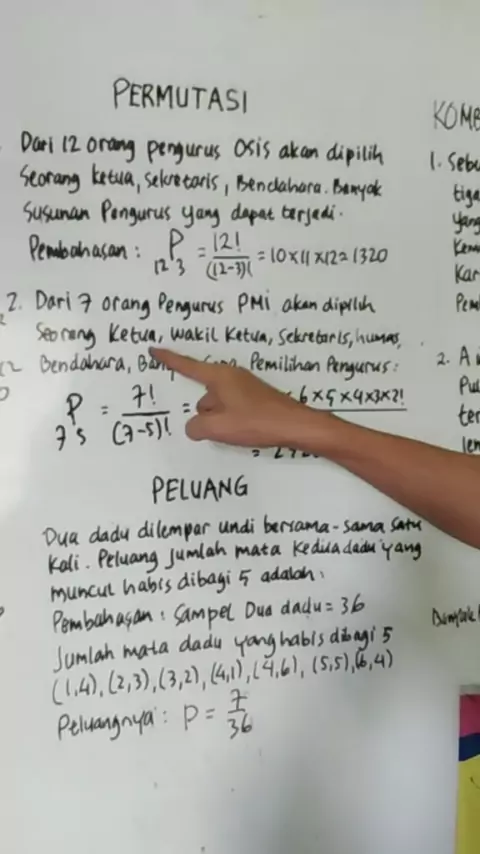 PERMUTASI
Dari 12 orang pengurus Osis akan dipilih
Seorang ketua, Sekretaris, Bendahara. Banyak
Susunan Pengurus yang dapat terjadi.
Pembahasan : 12 P 3 = 12! / (12-3)! = 10 x 11 x 12 = 1320
2. Dari 7 orang Pengurus PMI akan dipilih
Seorang Ketua, Wakil Ketua, Sekretaris, humas,
Bendahara, Pemilihan Pengurus :
7 P 5 = 7! / (7-5)! = 6 x 5 x 4 x 3 x 2!
=
PELUANG
Dua dadu dilempar undi bersama-sama satu
Kali. Peluang Jumlah mata Kedua dadu yang
muncul habis dibagi 5 adalah :
Pembahasan : Sampel Dua dadu = 36
Jumlah mata dadu yang habis dibagi 5
(1,4), (2,3), (3,2), (4,1), (4,6), (5,5), (6,4)
Peluangnya : P = 7/36
KOMB
1. Sebu
tiga
yang
Kem
Kar
Pem
2. A
Pul
ter
len